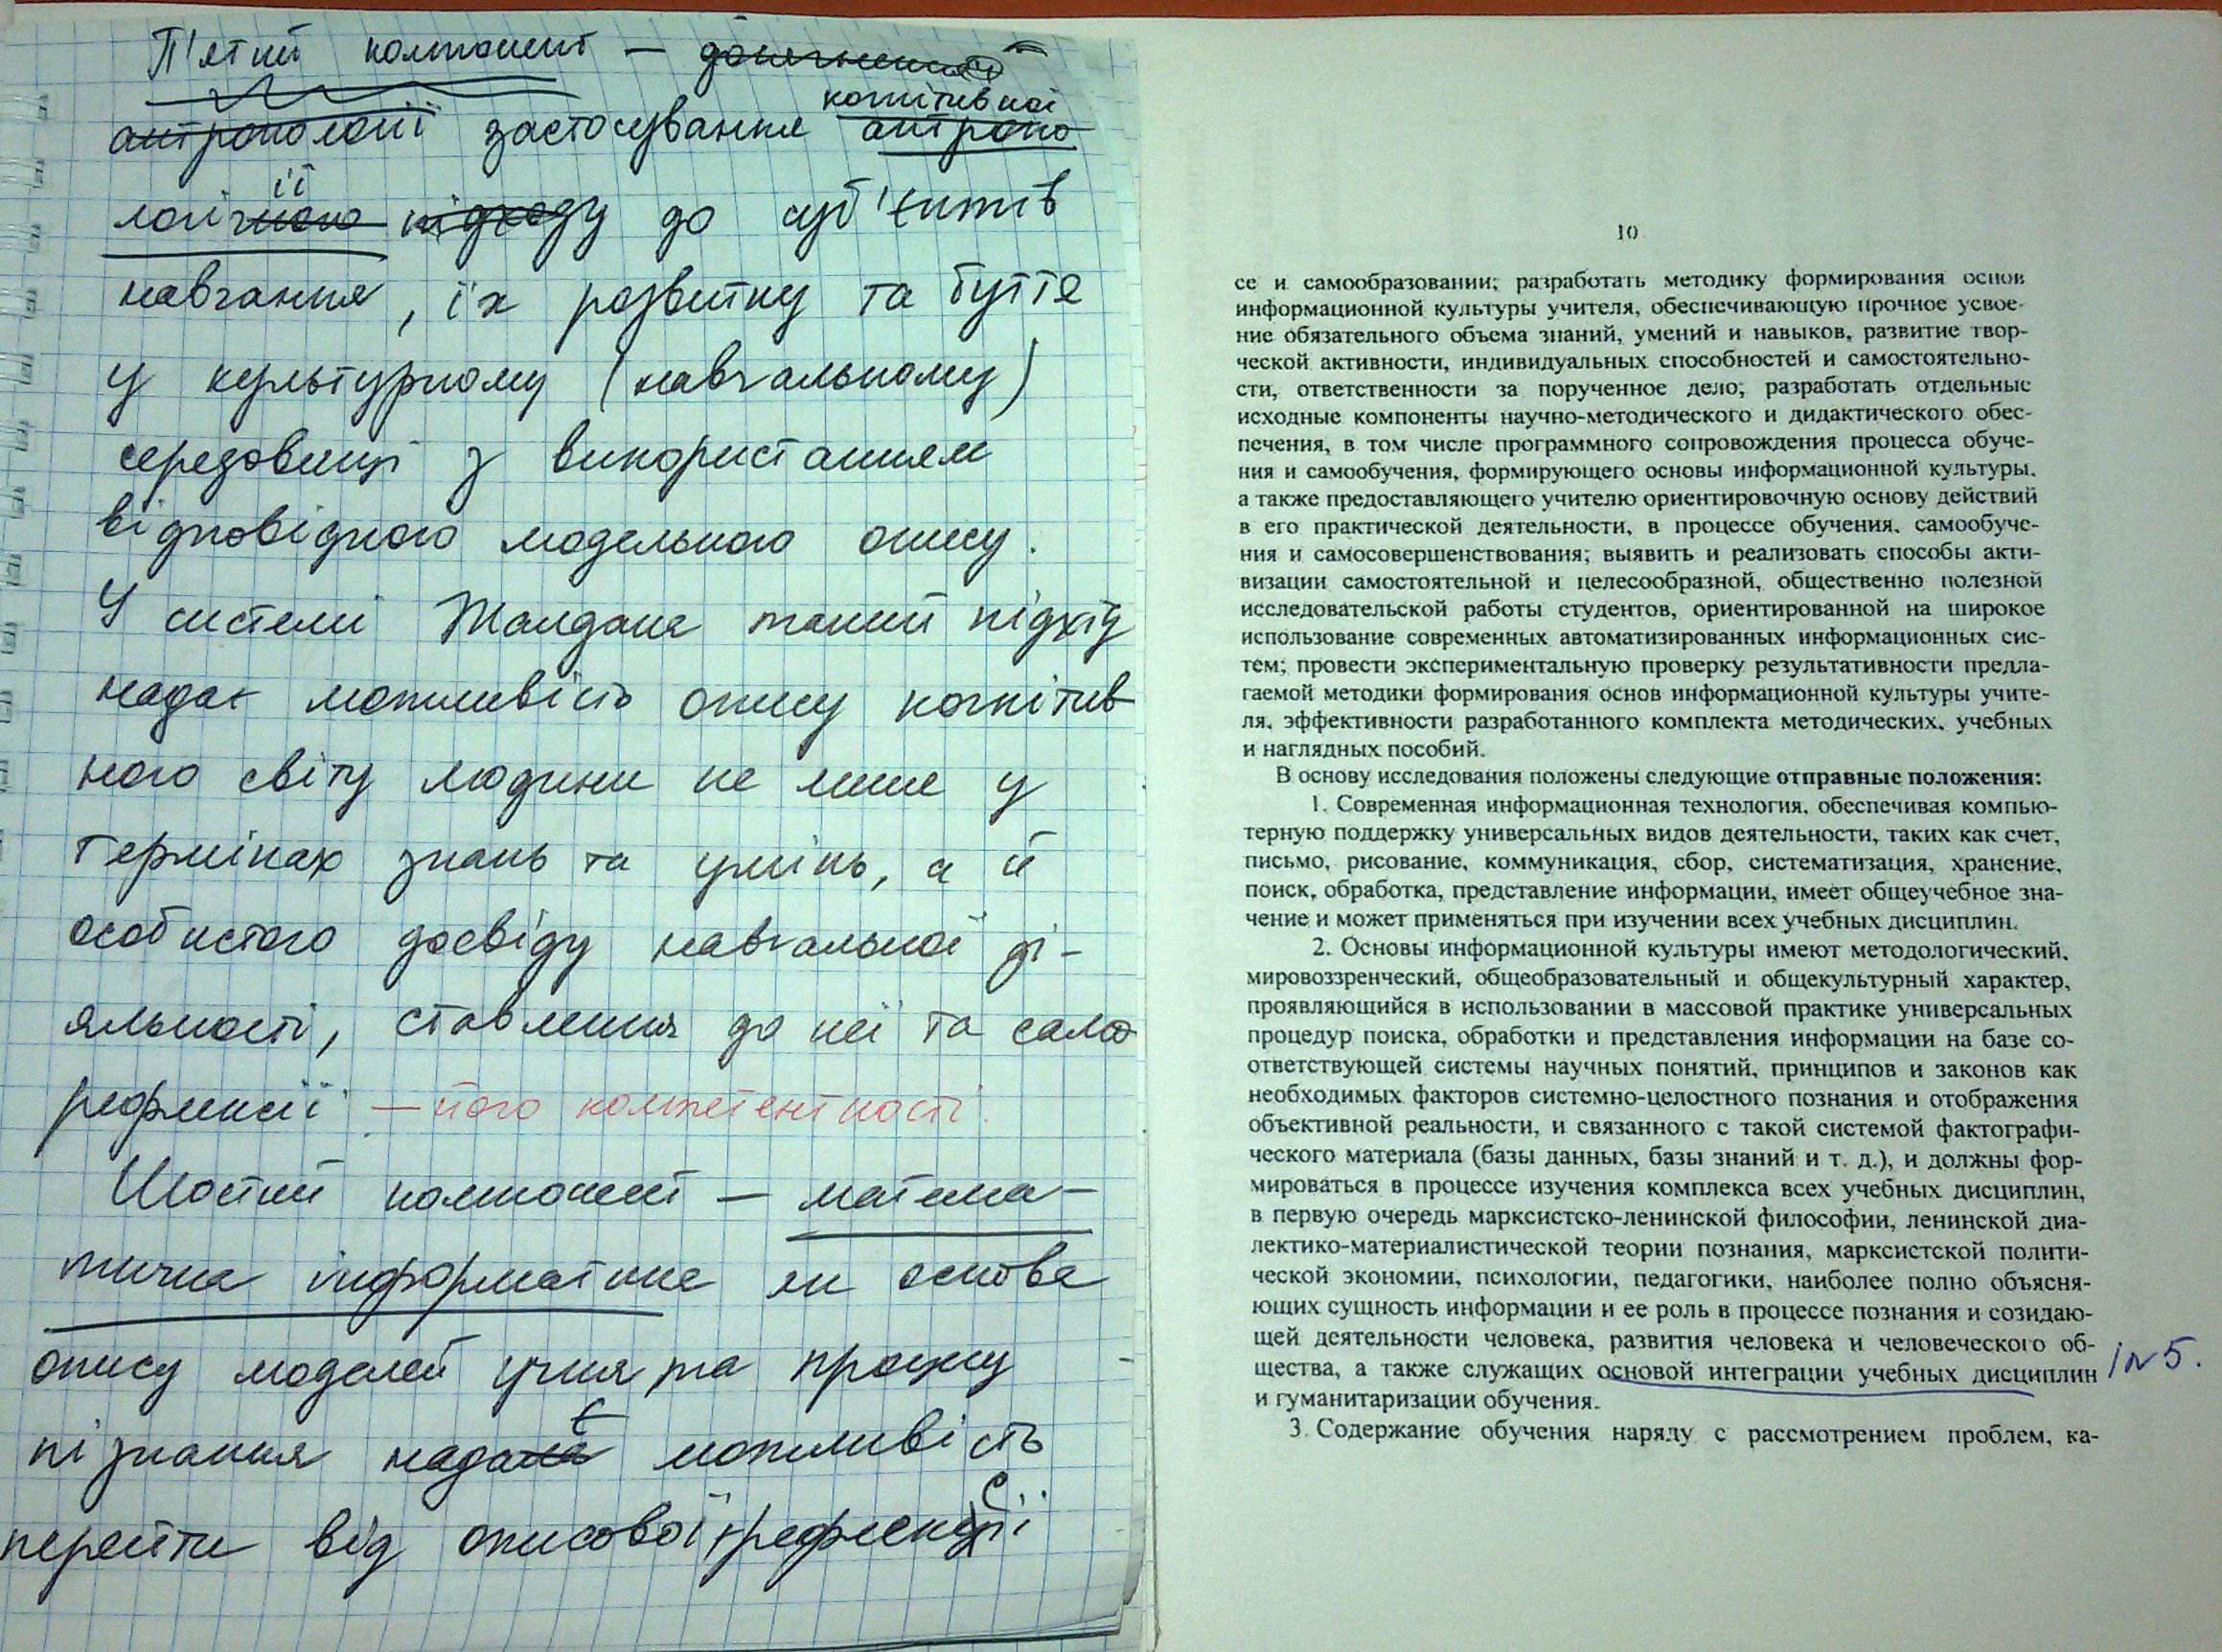 П'ятий компонент — досягнення
когнітивної
антропології застосування антропо
ії
логічного підходу до суб'єктів
навчання, їх розвитку та буття
у культурному (навчальному)
середовищі з використанням
відповідного модельного опису.
У системі Жалдака такий підхід
надає можливість опису когнітив
ного світу людини не лише у
термінах знань та умінь, а й
особистого досвіду навчальної ді-
яльності, ставлення до неї та само
рефлексії — його компетентності.
Шостий компонент — матема-
тична інформатика як основа
опису моделей учня та процесу
є
пізнання надала можливість
с
перейти від описової рефлексії
10
се и самообразовании; разработать методику формирования основ
информационной культуры учителя, обеспечивающую прочное усвое-
ние обязательного объема знаний, умений и навыков, развитие твор-
ческой активности, индивидуальных способностей и самостоятельно-
сти, ответственности за порученное дело; разработать отдельные
исходные компоненты научно-методического и дидактического обес-
печения, в том числе программного сопровождения процесса обуче-
ния и самообучения, формирующего основы информационной культуры,
а также предоставляющего учителю ориентировочную основу действий
в его практической деятельности, в процессе обучения, самообуче-
ния и самосовершенствования; выявить и реализовать способы акти-
визации самостоятельной и целесообразной, общественно полезной
исследовательской работы студентов, ориентированной на широкое
использование современных автоматизированных информационных сис-
тем; провести экспериментальную проверку результативности предла-
гаемой методики формирования основ информационной культуры учите-
ля, эффективности разработанного комплекта методических, учебных
и наглядных пособий.
В основу исследования положены следующие отправные положения:
1. Современная информационная технология, обеспечивая компью-
терную поддержку универсальных видов деятельности, таких как счет,
письмо, рисование, коммуникация, сбор, систематизация, хранение,
поиск, обработка, представление информации, имеет общеучебное зна-
чение и может применяться при изучении всех учебных дисциплин.
2. Основы информационной культуры имеют методологический,
мировоззренческий, общеобразовательный и общекультурный характер,
проявляющийся в использовании в массовой практике универсальных
процедур поиска, обработки и представления информации на базе со-
ответствующей системы научных понятий, принципов и законов как
необходимых факторов системно-целостного познания и отображения
объективной реальности, и связанного с такой системой фактографи-
ческого материала (базы данных, базы знаний и т. д.), и должны фор-
мироваться в процессе изучения комплекса всех учебных дисциплин,
в первую очередь марксистско-ленинской философии, ленинской диа-
лектико-материалистической теории познания, марксистской полити-
ческой экономии, психологии, педагогики, наиболее полно объясня-
ющих сущность информации и ее роль в процессе познания и созидаю-
щей деятельности человека, развития человека и человеческого об-
щества, а также служащих основой интеграции учебных дисциплин
и гуманитаризации обучения.
3. Содержание обучения наряду с рассмотрением проблем, ка-